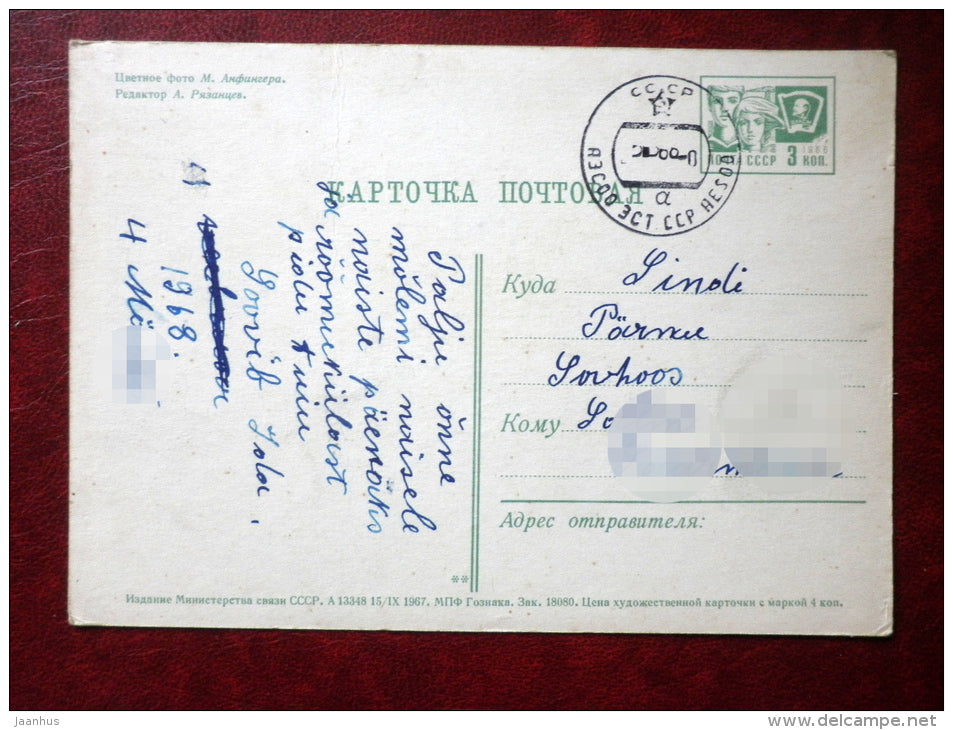 Цветное фото М. Анфингера.
Редактор А. Рязанцев.
СССР
АЕСОО ЭСТ ССР AESOO
а
ПОЧТА СССР 3 КОП.
1966
КАРТОЧКА ПОЧТОВАЯ
Palju õnne
mõlemi naisele
naiste päevaks
ja rõõmuküllast
pidu tuju
Soovib Ida.
1968.
4 Mä
Куда Sindi
Pärnu
Sovhoos
Кому
Адрес отправителя:
**
Издание Министерства связи СССР. А 13348 15/IX 1967. МПФ Гознака. Зак. 18080. Цена художественной карточки с маркой 4 коп.
Jaanhus
www.delcampe.net